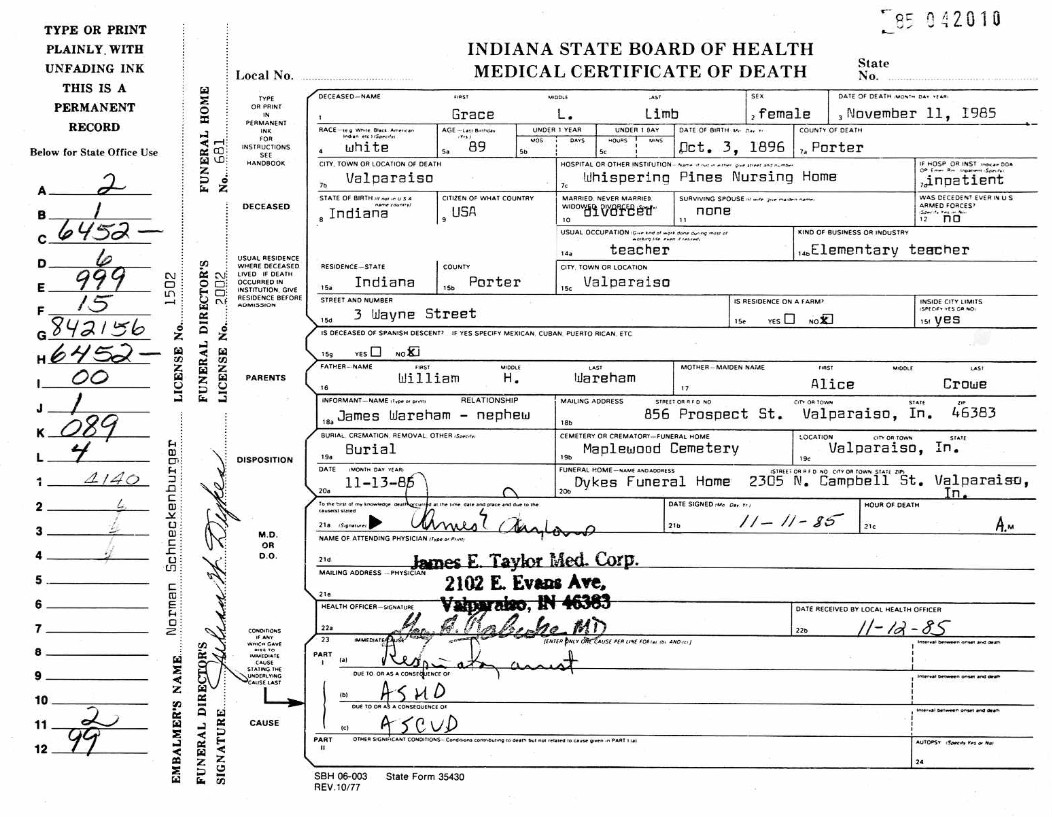 85 042010
TYPE OR PRINT
PLAINLY, WITH
UNFADING INK
THIS IS A
PERMANENT
RECORD
Below for State Office Use
A 2
B 1
C 6452-
D 6
E 999
F 15
G 842156
H 6452-
I 00
J 1
K 089
L 4
1 4140
2
3
4
5
6
7
8
9
10
11 2
12 99
EMBALMER'S NAME Norman Schneckenburger LICENSE No. 1502
FUNERAL DIRECTOR'S SIGNATURE Julian W. Dykes FUNERAL DIRECTOR'S LICENSE No. 2002 FUNERAL HOME No. 681
INDIANA STATE BOARD OF HEALTH
MEDICAL CERTIFICATE OF DEATH
Local No.
State No.
TYPE
OR PRINT
IN
PERMANENT
INK
FOR
INSTRUCTIONS
SEE
HANDBOOK
DECEASED
USUAL RESIDENCE
WHERE DECEASED
LIVED IF DEATH
OCCURRED IN
INSTITUTION, GIVE
RESIDENCE BEFORE
ADMISSION
PARENTS
DISPOSITION
M.D.
OR
D.O.
CONDITIONS
IF ANY
WHICH GAVE
RISE TO
IMMEDIATE
CAUSE
STATING THE
UNDERLYING
CAUSE LAST
CAUSE
DECEASED—NAME FIRST MIDDLE LAST SEX DATE OF DEATH (MONTH DAY YEAR)
1 Grace L. Limb 2 female 3 November 11, 1985
RACE—(e.g. White Black American Indian etc.) (Specify) AGE—Last Birthday (Yrs.) UNDER 1 YEAR UNDER 1 DAY DATE OF BIRTH (Mo Day Yr) COUNTY OF DEATH
MOS DAYS HOURS MINS
4 white 5a 89 5b 5c Oct. 3, 1896 7a Porter
CITY, TOWN OR LOCATION OF DEATH HOSPITAL OR OTHER INSTITUTION—Name (If not in either, give street and number) IF HOSP OR INST Indicate DOA OP Emer Rm Inpatient (Specify)
7b Valparaiso 7c Whispering Pines Nursing Home 7d inpatient
STATE OF BIRTH (If not in U S A name country) CITIZEN OF WHAT COUNTRY MARRIED, NEVER MARRIED, WIDOWED, DIVORCED (Specify) SURVIVING SPOUSE (If wife give maiden name) WAS DECEDENT EVER IN U S ARMED FORCES? (Specify Yes or No)
8 Indiana 9 USA 10 divorced 11 none 12 no
USUAL OCCUPATION (Give kind of work done during most of working life even if retired) KIND OF BUSINESS OR INDUSTRY
14a teacher 14b Elementary teacher
RESIDENCE—STATE COUNTY CITY, TOWN OR LOCATION
15a Indiana 15b Porter 15c Valparaiso
STREET AND NUMBER IS RESIDENCE ON A FARM? INSIDE CITY LIMITS (SPECIFY YES OR NO)
15d 3 Wayne Street 15e YES ☐ NO ☒ 15f yes
IS DECEASED OF SPANISH DESCENT? IF YES SPECIFY MEXICAN, CUBAN, PUERTO RICAN, ETC
15g YES ☐ NO ☒
FATHER—NAME FIRST MIDDLE LAST MOTHER—MAIDEN NAME FIRST MIDDLE LAST
16 William H. Wareham 17 Alice Crowe
INFORMANT—NAME (Type or print) RELATIONSHIP MAILING ADDRESS STREET OR R F D NO CITY OR TOWN STATE ZIP
18a James Wareham - nephew 18b 856 Prospect St. Valparaiso, In. 46383
BURIAL, CREMATION, REMOVAL, OTHER (Specify) CEMETERY OR CREMATORY—FUNERAL HOME LOCATION CITY OR TOWN STATE
19a Burial 19b Maplewood Cemetery 19c Valparaiso, In.
DATE (MONTH DAY YEAR) FUNERAL HOME—NAME AND ADDRESS (STREET OR R F D NO CITY OR TOWN STATE ZIP)
20a 11-13-85 20b Dykes Funeral Home 2305 N. Campbell St. Valparaiso,
In.
To the best of my knowledge death occurred at the time date and place and due to the cause(s) stated DATE SIGNED (Mo Day Yr) HOUR OF DEATH
21a (Signature) James E Taylor MD 21b 11-11-85 21c A.M
NAME OF ATTENDING PHYSICIAN (Type or Print)
21d James E. Taylor Med. Corp.
MAILING ADDRESS—PHYSICIAN
21e 2102 E. Evans Ave,
Valparaiso, IN 46383
HEALTH OFFICER—SIGNATURE DATE RECEIVED BY LOCAL HEALTH OFFICER
22a MD 22b 11-12-85
23 IMMEDIATE CAUSE (ENTER ONLY ONE CAUSE PER LINE FOR (a) (b) AND (c)) Interval between onset and death
PART I (a) Respiratory arrest
DUE TO OR AS A CONSEQUENCE OF Interval between onset and death
(b) ASHD
DUE TO OR AS A CONSEQUENCE OF Interval between onset and death
(c) ASCVD
PART II OTHER SIGNIFICANT CONDITIONS—Conditions contributing to death but not related to cause given in PART I (a) AUTOPSY (Specify Yes or No)
24
SBH 06-003 State Form 35430
REV.10/77